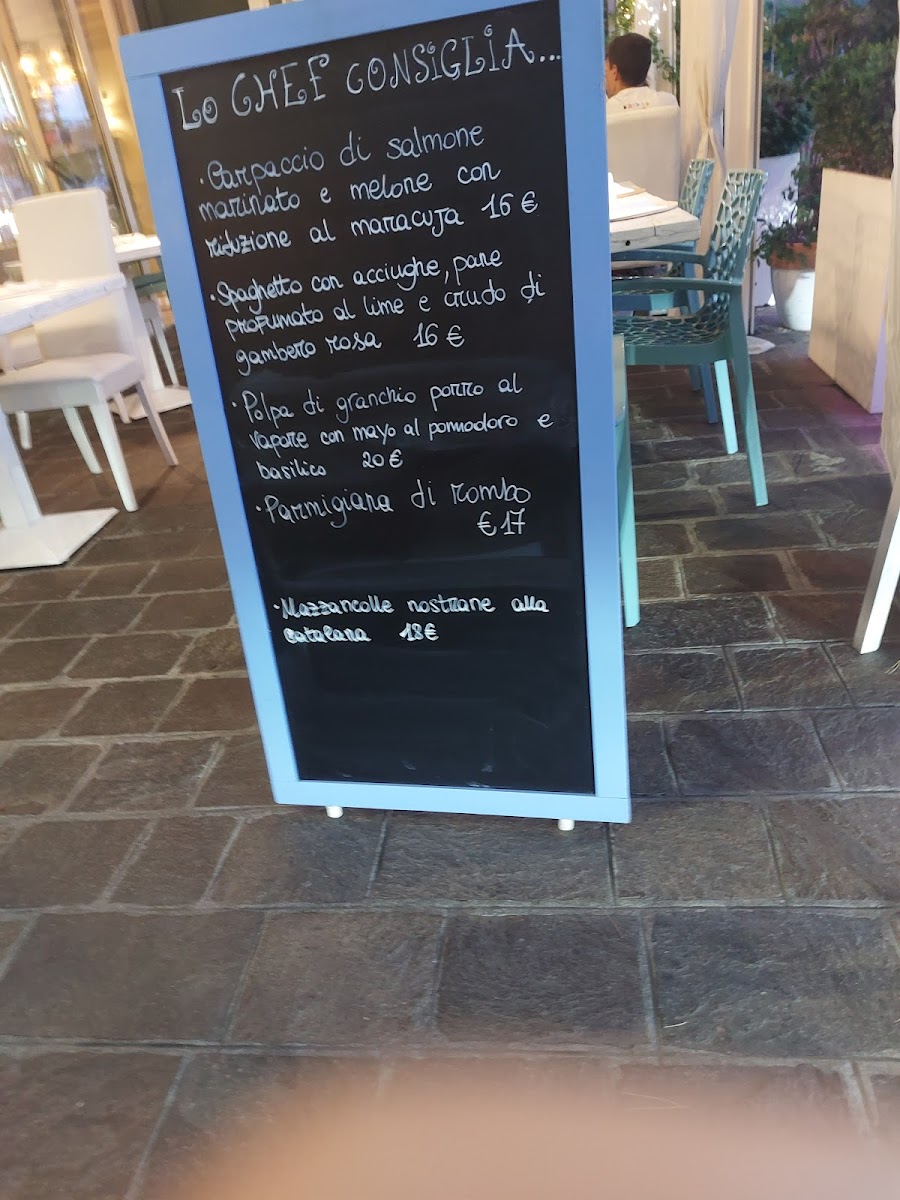 Lo CHEF CONSIGLIA...
· Carpaccio di salmone
marinato e melone con
riduzione al maracuja 16 €
· Spaghetto con acciughe, pane
profumato al lime e crudo di
gambero rosa 16 €
· Polpa di granchio porro al
vapore con mayo al pomodoro e
basilico 20 €
· Parmigiana di rombo
€ 17
· Mazzancolle nostrane alla
catalana 18 €